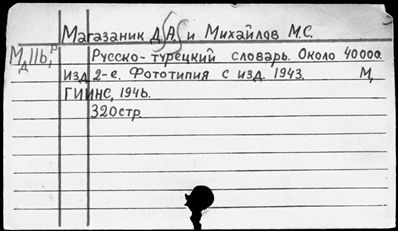 Магазаник Д.А. и Михайлов М.С.
МдIIb,р Русско-турецкий словарь. Около 40000.
изд. 2-е. Фототипия с изд. 1943. М,
ГИИНС, 1946.
320стр.